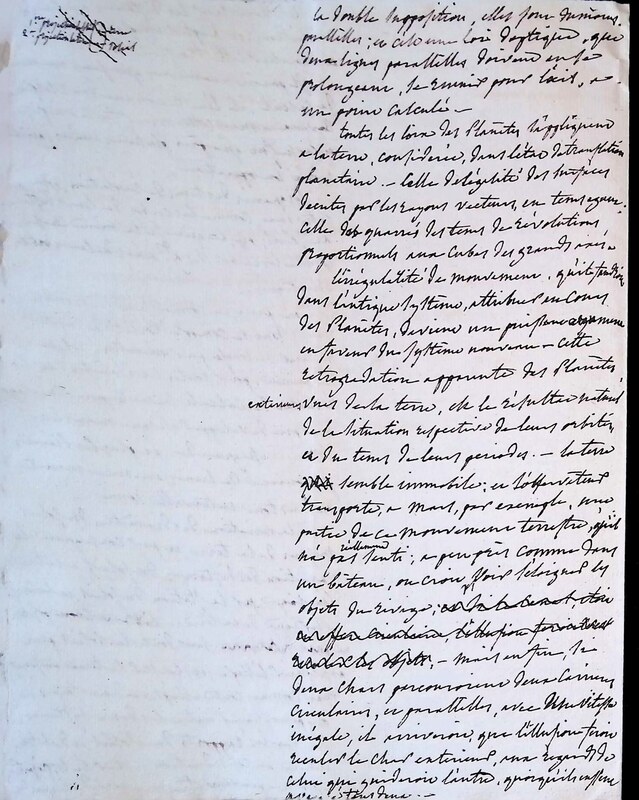 la double supposition, elles sont
parallelles; et c'est une loi d'optique, que
deux lignes parallelles doivent en se
prolongeant, se reunir pour l'œil, a
un point calculé —
toutes les loix des Planetes s'appliquent
a la terre, considérée, dans l'état de translation
planetaire. — Celle de l'égalité des surfaces
décrites par les rayons vecteurs, en tems egaux.
Celle des quarrés des tems de Révolutions,
proportionnels aux Cubes des grands axes.
l'irrégularité de mouvement, qu'il
dans l'antique Systême, attribuer en Cours
des Planetes, devient un puissant argument
en faveur du Systême nouveau — Cette
Retrogradation apparente des Planetes,
exterieures
vues de la terre, est le Résultat naturel
de la situation respective de leurs orbites,
et du tems de leurs periodes. — la terre
semble immobile; et l'observateur
transporte, a Mars, par exemple, une
partie de ce mouvement terrestre, qu'il
n'a pas réellement senti; a peu près comme dans
un bateau, on croit voir s'éloigner les
objets du rivage;
— mais enfin, si
deux chars parcouroient deux Carrieres
Circulaires, et parallelles, avec une vitesse
inégale, il arriveroit, que l'illusion feroit
reculer le Char exterieur, aux regards de
celui qui guideroit l'autre, quoiqu'ils eussent